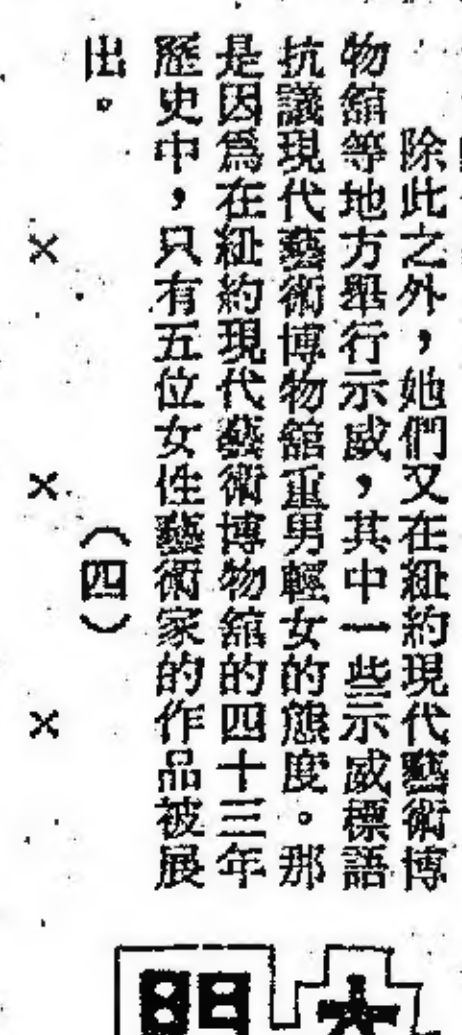 除此之外，她們又在紐約現代藝術博
物舘等地方舉行示威，其中一些示威標語
抗議現代藝術博物舘重男輕女的態度。那
是因爲在紐約現代藝術博物舘的四十三年
歷史中，只有五位女性藝術家的作品被展
出。
（四）
× × ×